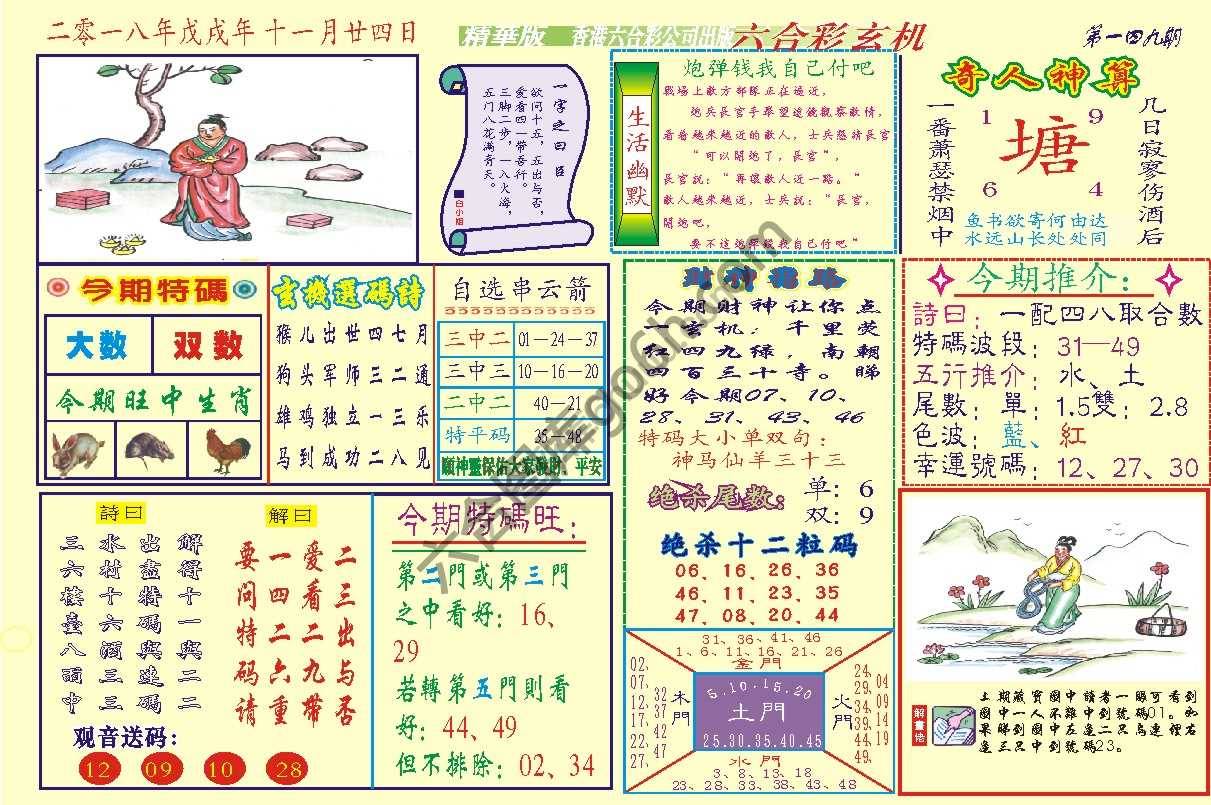 二零一八年戊戌年十一月廿四日
精華版 香港六合彩公司出版 六合彩玄机
第一四九期
一字之曰：臣
欲问十五，五出与否，
爱看四一带吾行。
三脚二步，一入火海，
五门八花满青天。
白小姐
生活幽默
炮弹钱我自己付吧
戰場上敵方部隊正在逼近，
炮兵長官手舉望遠鏡觀察敵情，
看着越来越近的敵人，士兵懇請長官
“可以開炮了，長官”，
長官說：“再讓敵人近一路。”
敵人越来越近，士兵説：“長官，
開炮吧，
要不這炮彈錢我自己付吧”
奇人神算
几日寂寥伤酒后
一番萧瑟禁烟中
1 9
塘
6 4
鱼书欲寄何由达
水远山长处处同
今期特碼
大数 双数
今期旺中生肖
玄機選碼詩
猴儿出世四七月
狗头军师三二通
雄鸡独立一三乐
马到成功二八见
自选串云箭
三中二 01—24—37
三中三 10—16—20
二中二 40—21
特平码 35—48
願神靈保佑大家發財、平安
財神指路
今期财神让你点
一玄机：千里莺
红四九绿，南朝
四百三十寺。睇
好今期07、10、
28、31、43、46
特码大小单双句：
神马仙羊三十三
绝杀尾数：
单：6
双：9
绝杀十二粒码
06、16、26、36
46、11、23、35
47、08、20、44
今期推介：
詩曰：一配四八取合數
特碼波段：31—49
五行推介：水、土
尾數：單：1.5雙：2.8
色波：藍、紅
幸運號碼：12、27、30
詩曰
解得十一與二
出盡特碼與連碼
水村十六酒三三
三六樓臺八面中
解曰
二三出与否
爱看二九带
一四二六重
要问特码请
观音送码：
12 09 10 28
今期特碼旺：
第二門或第三門
之中看好：16、
29
若轉第五門則看
好：44、49
但不排除：02、34
31、36、41、46
1、6、11、16、21、26
金門
02、07、12、17、22、27、
32、37、42、47
木門
5.10.15.20
土門
25.30.35.40.45
火門
24、29、34、39、44、49、
04、09、14、19
水門
3、8、13、18
23、28、33、38、43、48
解畫信
上期藏寶圖中讀者一眼可看到
圖中一人不難中到號碼01。如
果睇到圖中左邊二只鳥連徑右
邊三只中到號碼23。
六合图库go00n.com